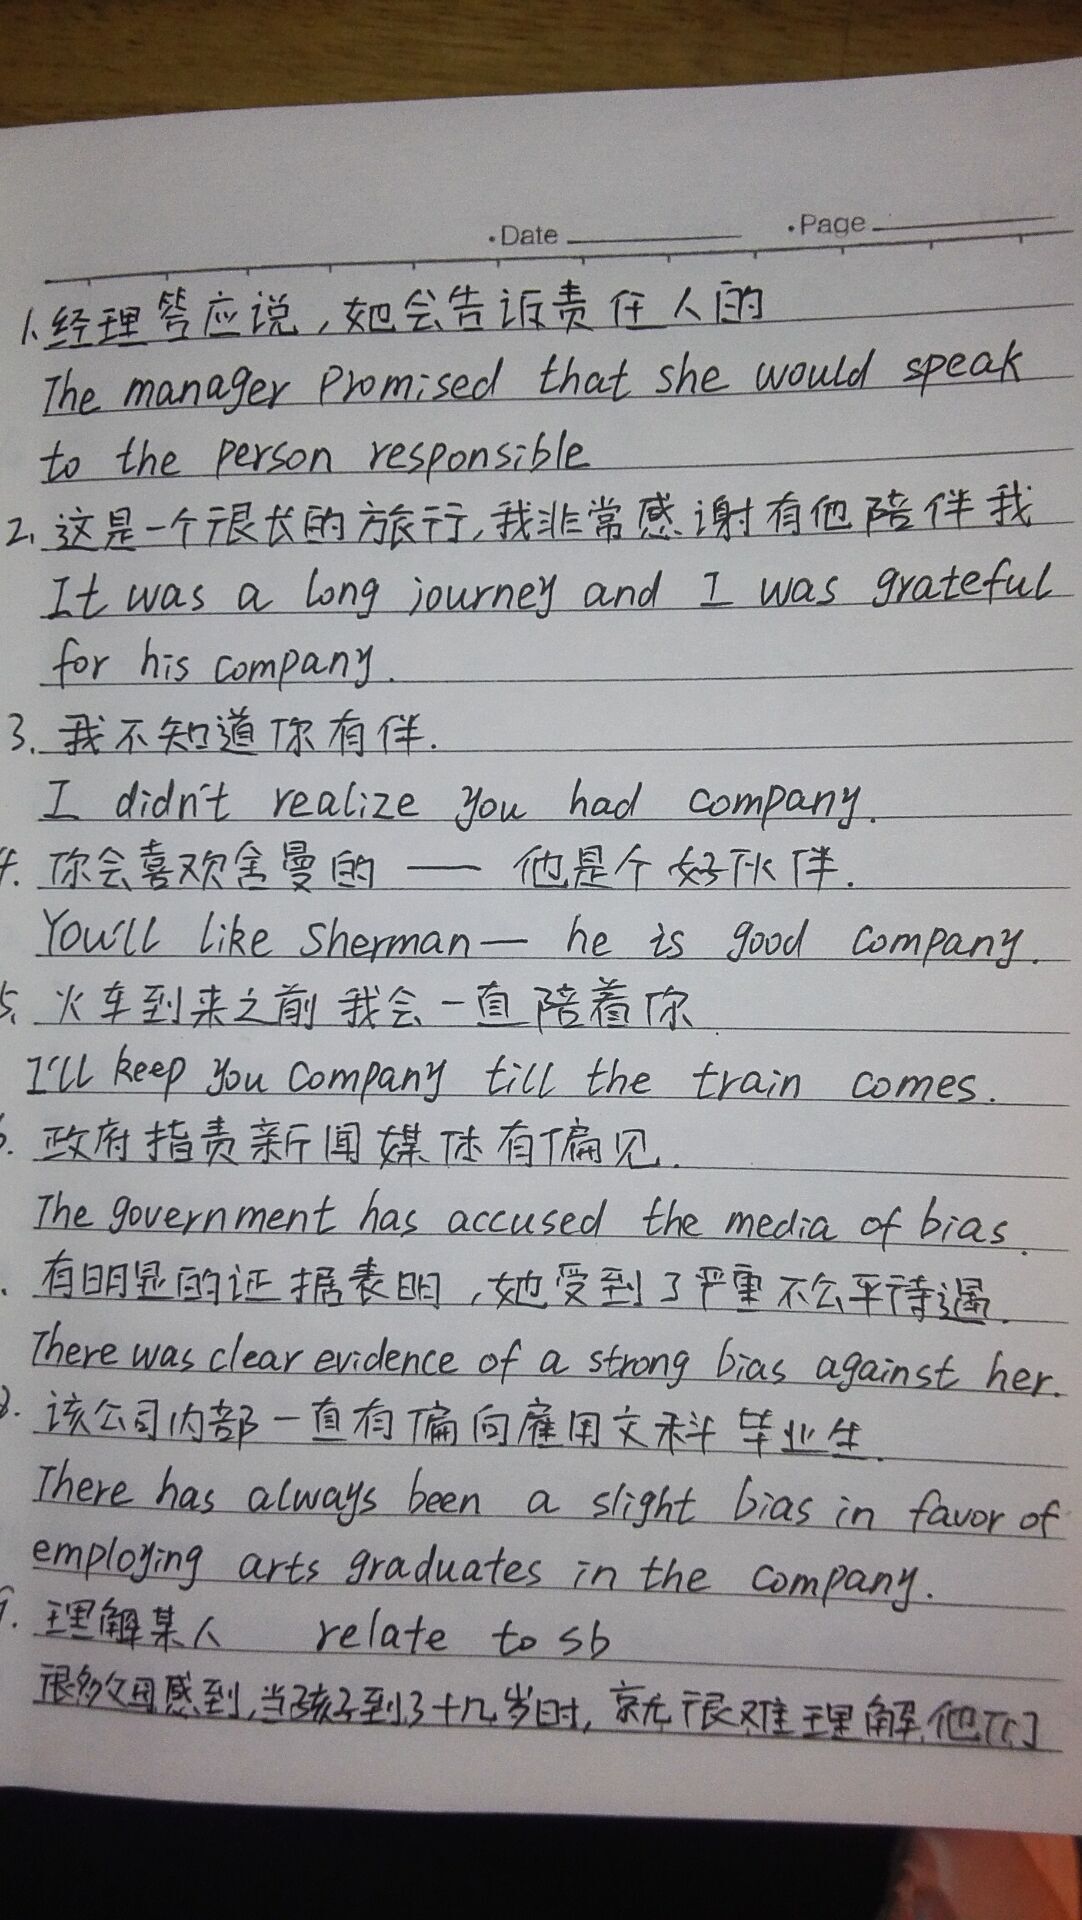 ·Date ·Page
1.经理答应说,她会告诉责任人的
The manager Promised that she would speak
to the person responsible
2.这是一个很长的旅行,我非常感谢有他陪伴我
It was a long journey and I was grateful
for his company.
3.我不知道你有伴.
I didn't realize you had company.
4.你会喜欢舍曼的——他是个好伙伴.
You'll like Sherman— he is good company.
5.火车到来之前我会一直陪着你
I'll keep you company till the train comes.
6.政府指责新闻媒体有偏见.
The government has accused the media of bias.
.有明显的证据表明,她受到了严重不公平待遇.
There was clear evidence of a strong bias against her.
8.该公司内部一直有偏向雇用文科毕业生.
There has always been a slight bias in favor of
employing arts graduates in the company.
9.理解某人 relate to sb
很多父母感到,当孩子到了十几岁时,就很难理解他们